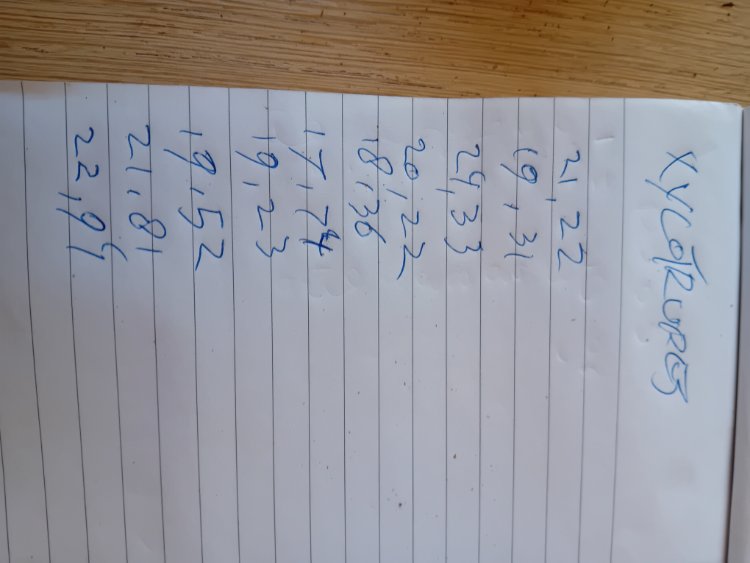 21,22
19,31
24,33
20,22
18,36
17,74
19,23
19,52
21,81
22,94